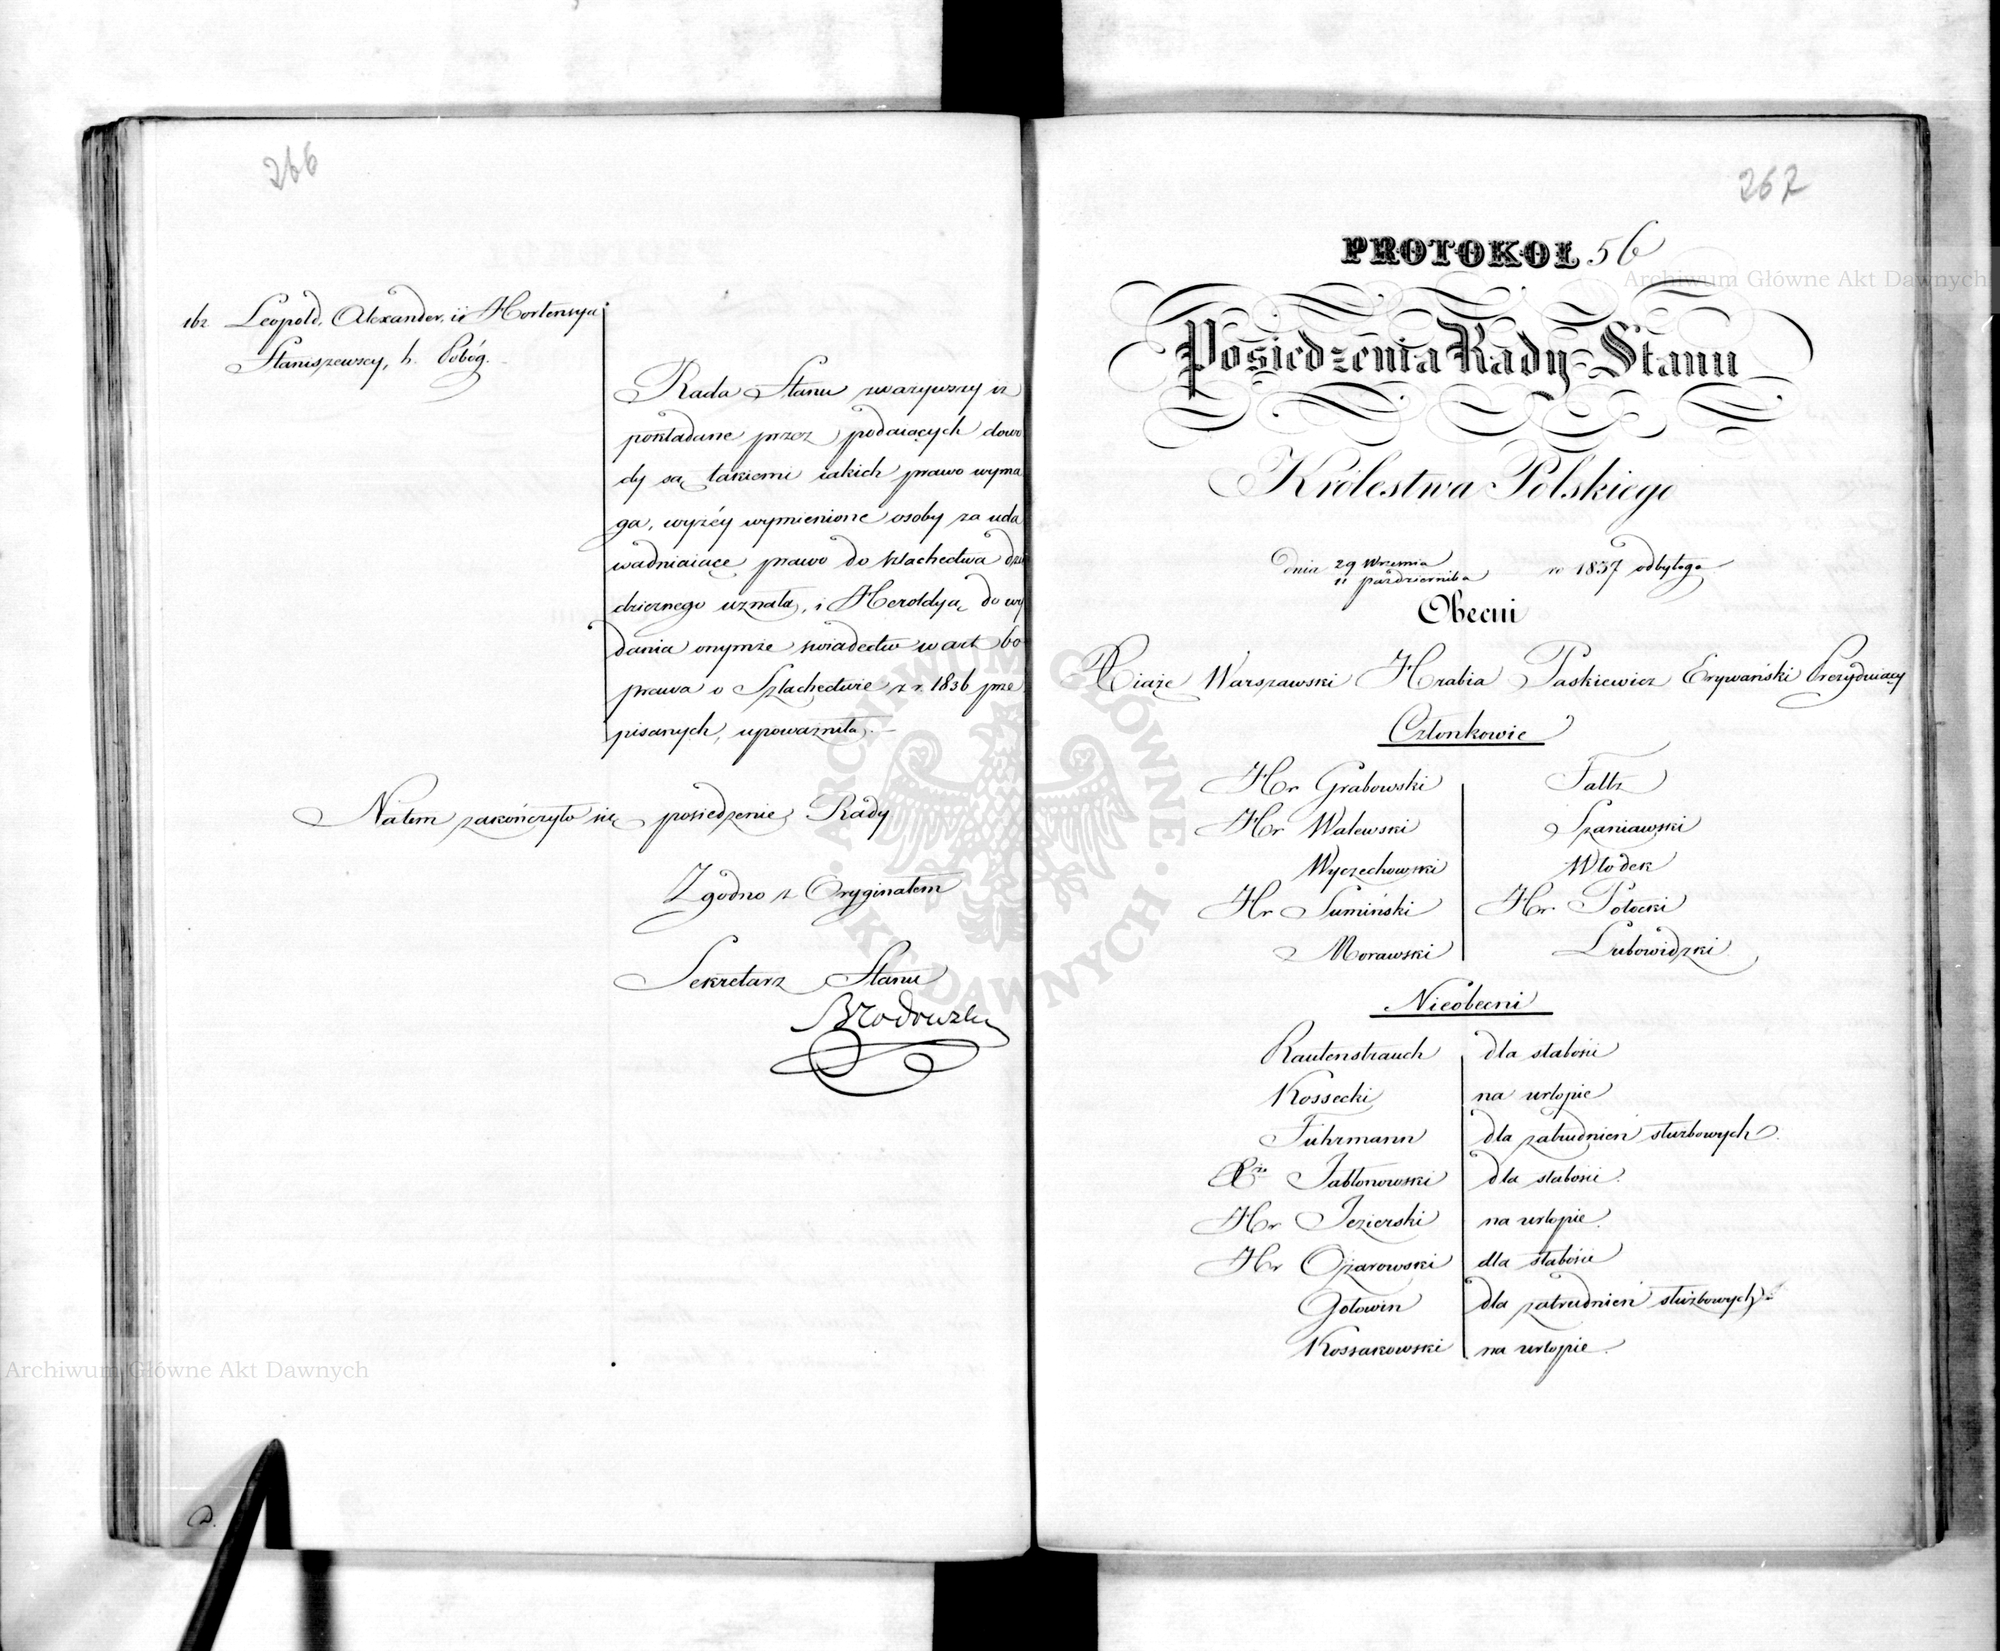 266
162 Leopold, Alexander, i Hortensya
Staniszewscy, h. Pobóg.
Rada Stanu zważywszy iż
pokładane przez podaiących dowo
dy są takiemi iakich prawo wyma
ga, wyżéy wymienione osoby za uda
wadniaiące prawo do szlachectwa dzie
dzicznego uznała, i Heroldyą do wy
dania onymże świadectw w art 60
prawa o Szlachectwie z r. 1836 prze
pisanych, upoważniła.
Natem zakończyło się posiedzenie Rady
Zgodno z Oryginałem
Sekretarz Stanu
Brodowski
267
PROTOKOŁ 56
Posiedzenia Rady Stanu
Królestwa Polskiego
dnia 29 Września
11 października
ro 1837 odbytego
Obecni
Xiąże Warszawski Hrabia Paskiewicz Erywański Prezyduiący
Członkowie
Hr Grabowski Faltz
Hr Walewski Szaniawski
Wyczechowski Włodek
Hr Sumiński Hr. Potocki
Morawski Lubowidzki
Nieobecni
Rautenstrauch dla słabości
Kossecki na urlopie
Fuhrmann dla zatrudnień służbowych
Xże Jabłonowski dla słabości.
Hr Jezierski na urlopie.
Hr Ożarowski dla słabości
Gołowin dla zatrudnień służbowych
Kossakowski na urlopie.
Archiwum Główne Akt Dawnych
Archiwum Główne Akt Dawnych
ARCHIWUM GŁÓWNE AKT DAWNYCH